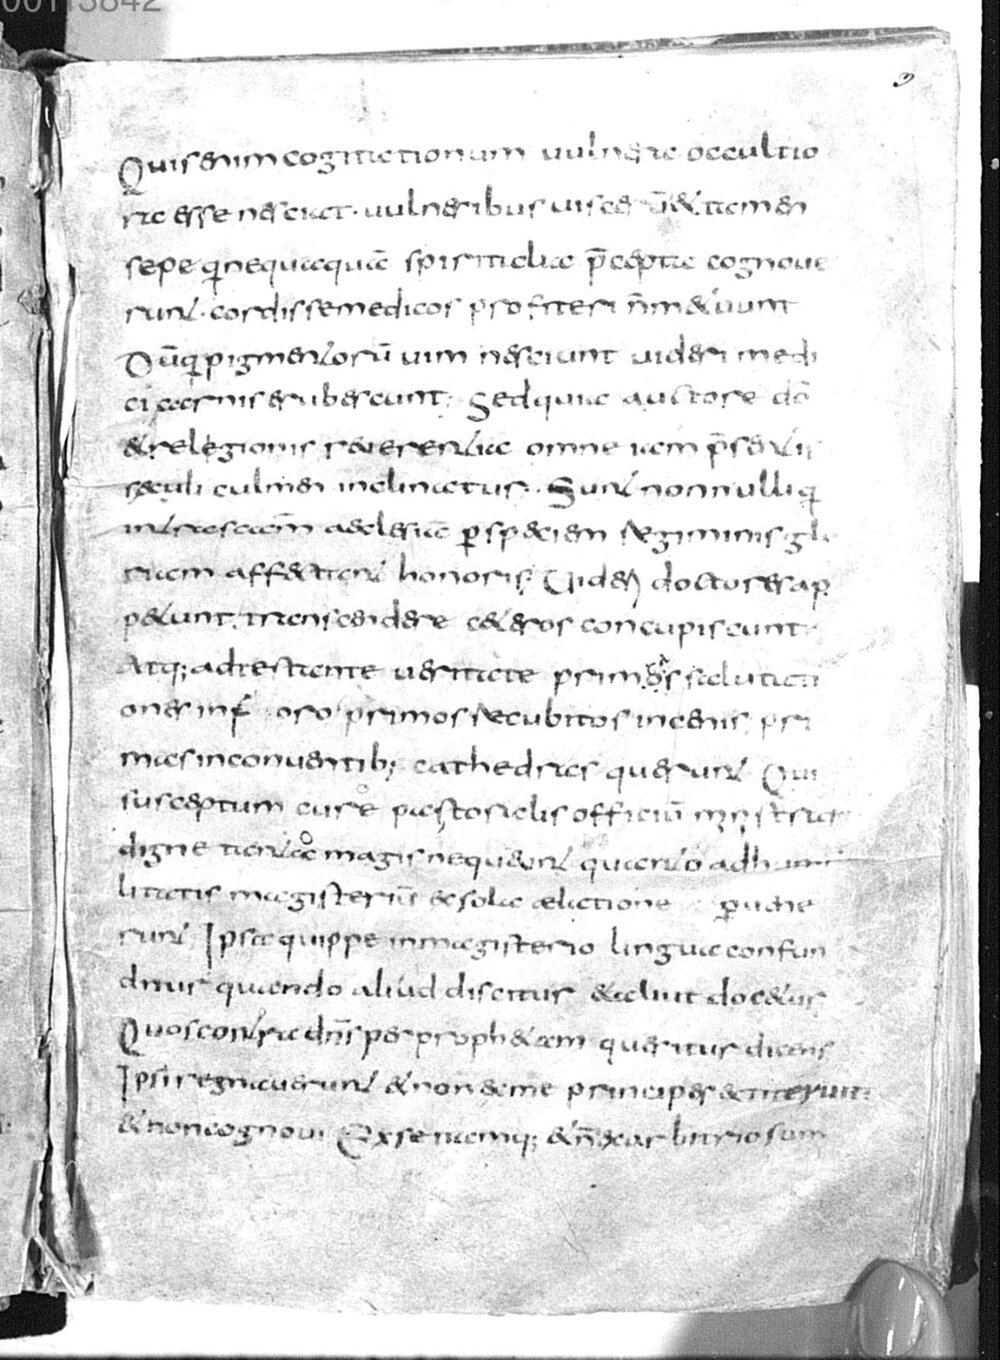 00113842
9
Quis enim cogitationum uulnera occultio
ra esse nesciat · uulneribus uiscerū & tamen
sepe qui nequaquā spiritalia p̄cepta cognoue
runt · cordis se medicos profiteri n̄ m&uunt
Dū qui pigmentorū uim nesciunt uideri medi
ci carnis erubescunt; Sed quia auctore dō
& relegionis reuerentiae omne iam p̄sentis
saeculi culmen inclinatur · Sunt nonnulli qui
intra scām aeclesiā ꝑ speciem regiminis glo
riam affectant honoris; Uideri doctores ap
petunt, transcendere ceteros concupiscunt
Atq; adtestante ueritate primas salutati
ones in foro primos recubitos in cenis, pri
mas in conuentib; cathedras querunt Qui
susceptum cure pastoralis officiū ministrare
digne tanto magis nequeunt quanto ad humi
litatis magisteriū ex sola elatione ꝑuene
runt Ipsa quippe in magisterio lingua confun
ditur quando aliud discitur & aliud docetur
Quos contra dn̄s per proph&am queritur dicens
Ipsi regnauerunt & non ex me principes extiterunt
& non cognoui Ex se namq; & n̄ ex arbitrio sum